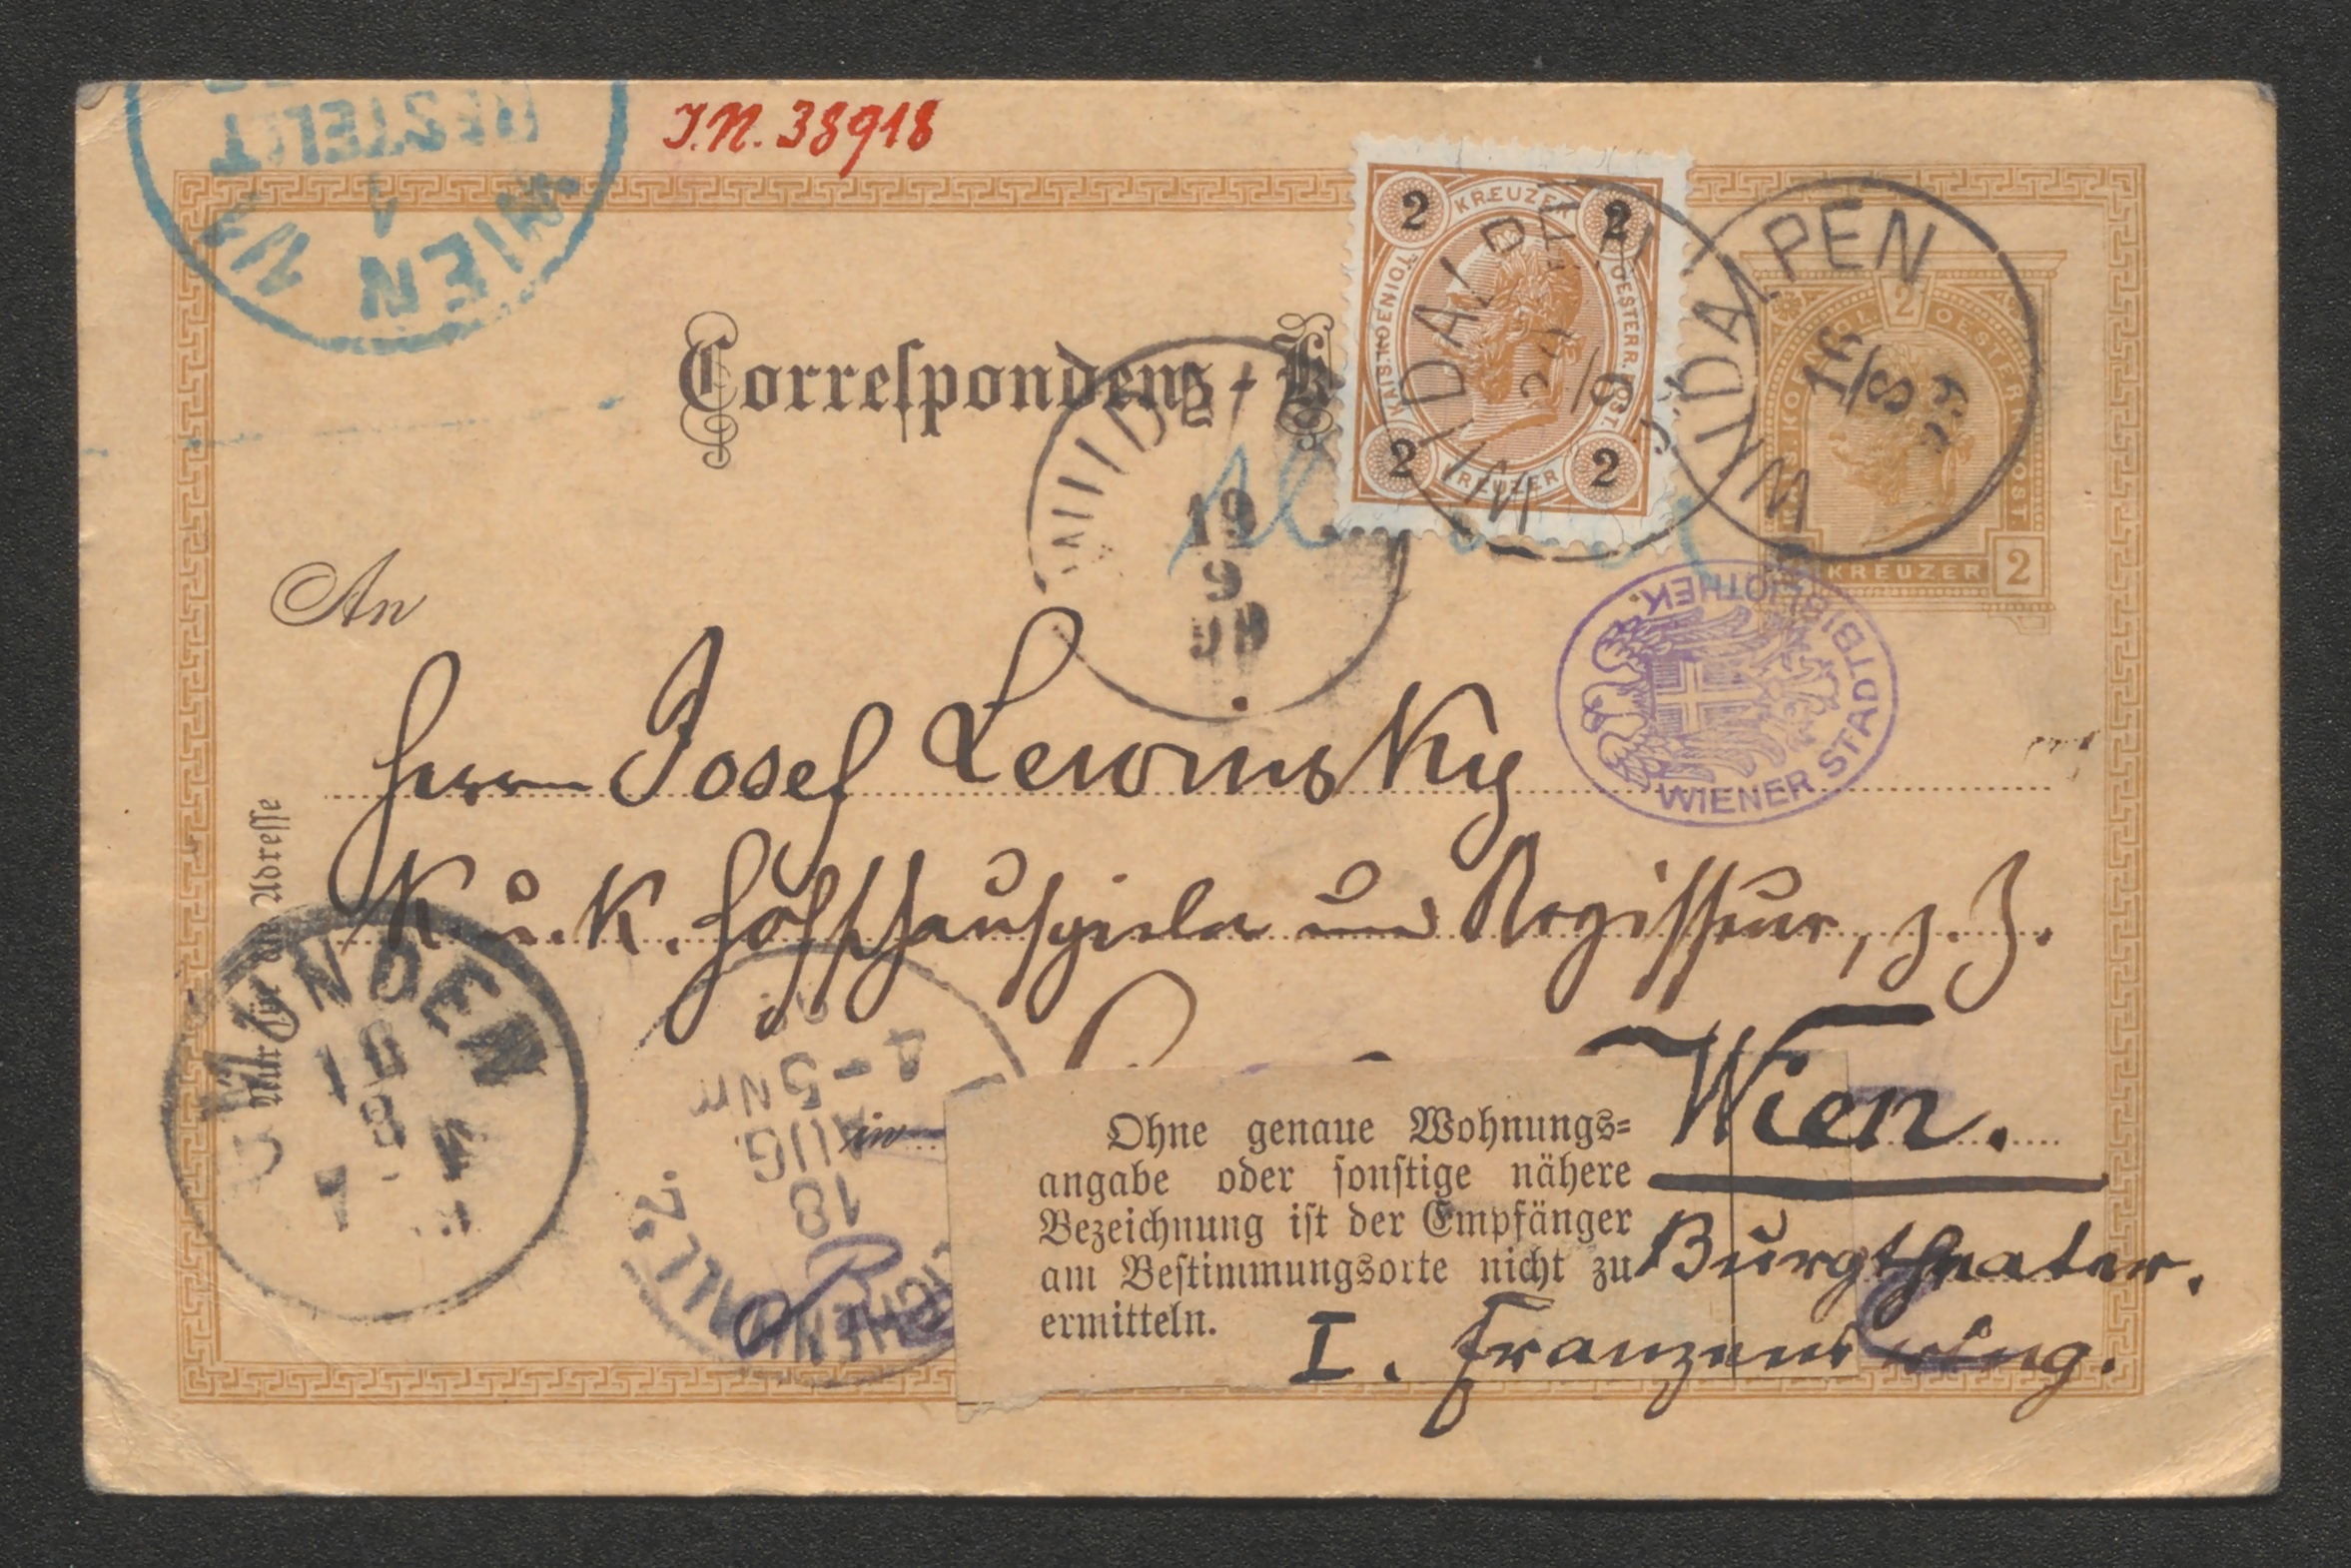 WIEN 1/1
BESTELLT
J.N. 38918
2 KREUZER 2
KAIS. KOENIGL. OESTERR. POST.
2 KREUZER 2
WINDAU
24/8
WINDAU
PEN
16/8
99
2
KREUZER 2
Correspondenz-K
19
9
99
An
WIENER STADTBIBLIOTHEK.
Herrn Josef Lewinsky
K. u. K. Hofschauspieler und Regisseur, z. Z.
Nur für die Adresse
GMUNDEN
18
8
4-5 Nm
AUG.
18
in
Wien.
Ohne genaue Wohnungs-
angabe oder sonstige nähere
Bezeichnung ist der Empfänger
am Bestimmungsorte nicht zu
ermitteln.
Burgtheater.
I. Franzensring.